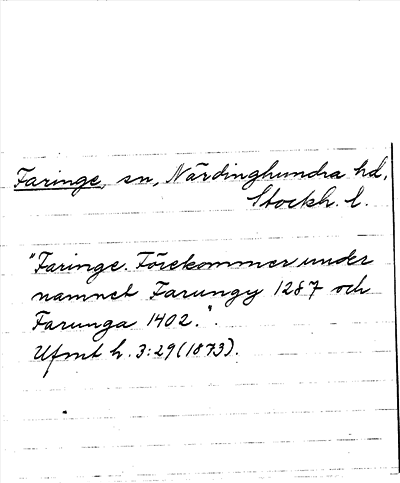 Faringe, sn, Närdinghundra hd,
Stockh. l.
"Faringe. Förekommer under
namnet Farungy 1287 och
Farunga 1402.".
Ufmt h. 3:29 (1873).